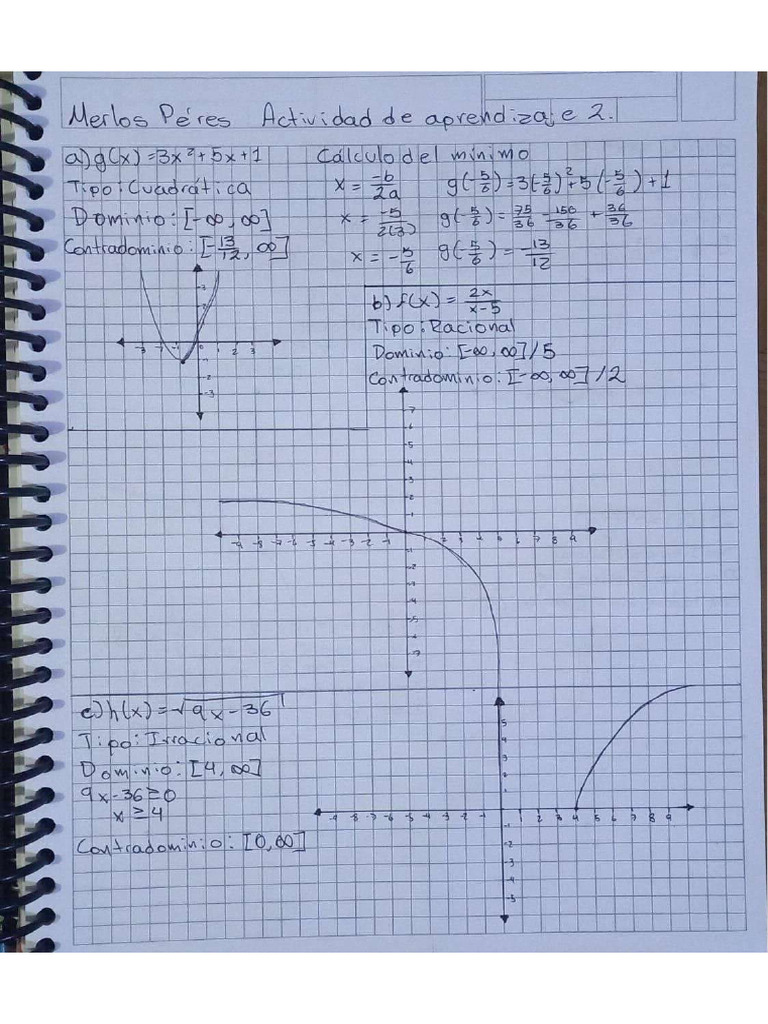 Merlos Péres Actividad de aprendizaje 2.
a) g(x)=3x²+5x+1
Tipo: Cuadrática
Dominio: [-∞, ∞]
Contradominio: [-13/12, ∞]
Cálculo del mínimo
x = -b/2a
x = -5/2(3)
x = -5/6
g(-5/6)=3(-5/6)²+5(-5/6)+1
g(-5/6)=75/36-150/36+36/36
g(-5/6)=-13/12
b) f(x) = 2x/x-5
Tipo: Racional
Dominio: [-∞, ∞]/5
Contradominio: [-∞, ∞]/2
c) h(x)=√9x-36
Tipo: Irracional
Dominio: [4, ∞]
9x-36≥0
x≥4
Contradominio: [0, ∞]